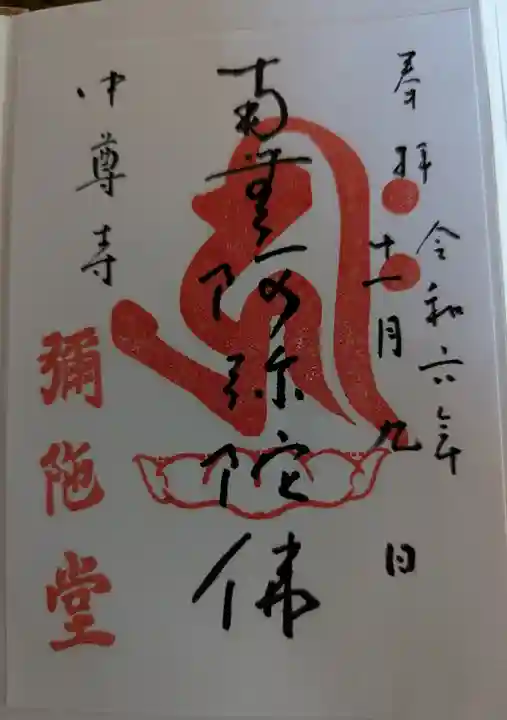 奉拝
令和六年
十一月九日
南無阿弥陀佛
中尊寺
彌陀堂